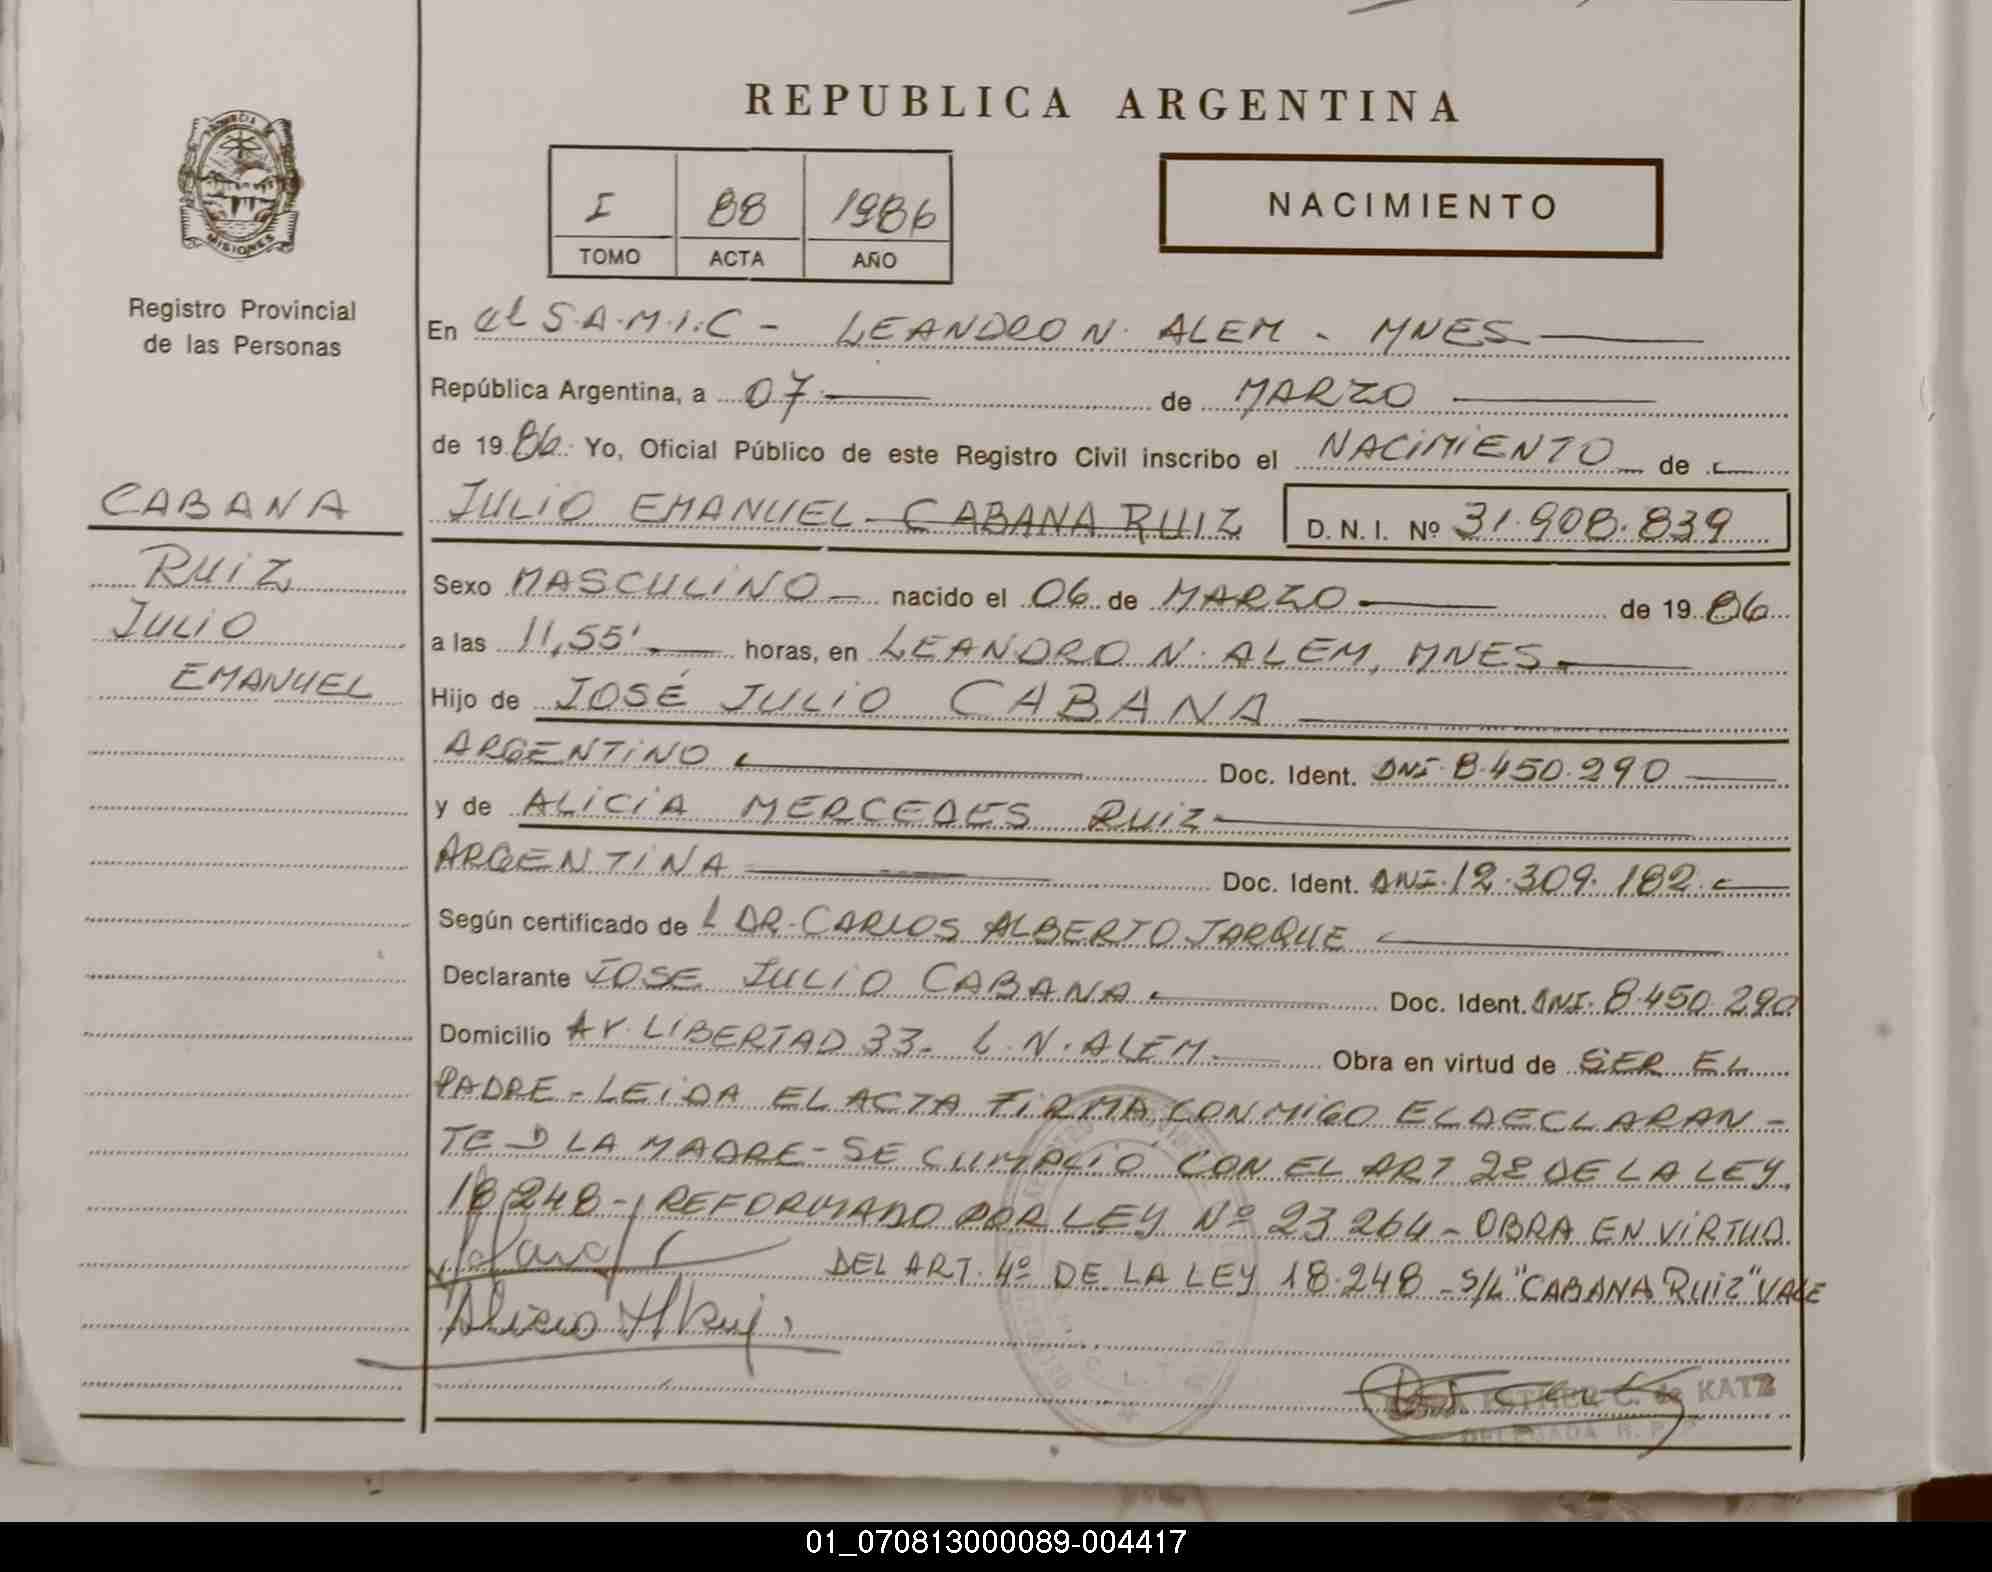 REPUBLICA ARGENTINA
PROVINCIA DE
MISIONES
Registro Provincial
de las Personas
I 88 1986
TOMO ACTA AÑO
NACIMIENTO
CABANA
RUIZ
JULIO
EMANUEL
En el S.A.M.I.C - LEANDRO N. ALEM - MNES
República Argentina, a 07 de MARZO
de 1986. Yo, Oficial Público de este Registro Civil inscribo el NACIMIENTO de
JULIO EMANUEL CABANA RUIZ D. N. I. Nº 31.908.839
Sexo MASCULINO nacido el 06 de MARZO de 1986
a las 11,55' horas, en LEANDRO N. ALEM, MNES
Hijo de JOSÉ JULIO CABANA
ARGENTINO Doc. Ident. DNI. 8.450.290
y de ALICIA MERCEDES RUIZ
ARGENTINA Doc. Ident. DNI. 12.309.182
Según certificado de L DR. CARLOS ALBERTO JARQUE
Declarante JOSE JULIO CABANA Doc. Ident. DNI. 8.450.290
Domicilio AV. LIBERTAD 33- L.N. ALEM Obra en virtud de SER EL
PADRE - LEIDA EL ACTA FIRMA CONMIGO EL DECLARAN-
TE Y LA MADRE - SE CUMPLIÓ CON EL ART 2º DE LA LEY
18.248 - REFORMADO POR LEY Nº 23264 - OBRA EN VIRTUD
DEL ART. 4º DE LA LEY 18.248 - S/L "CABANA RUIZ" VALE
ESTHER C. de KATZ
DELEGADA R. P.
01_070813000089-004417